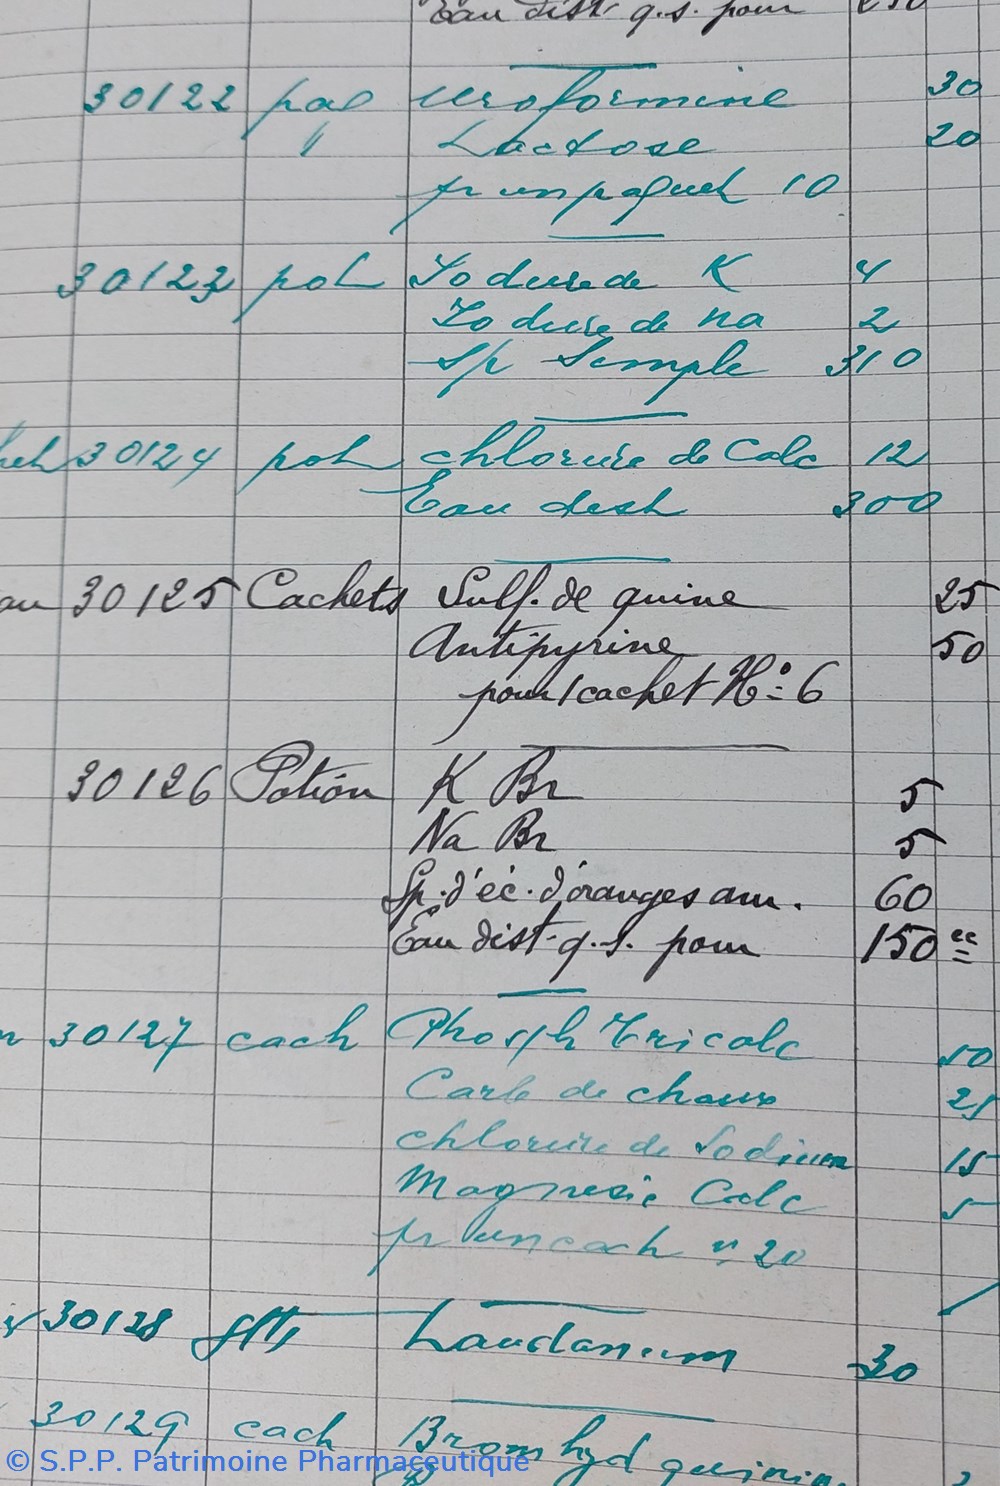 Eau dist. q.s. pour 250
30122 paq Uroformine 30
" Lactose 20
pr un paquet 10
30123 pot Iodure de K 4
Iodure de Na 2
Sp Simple 310
30124 pot chlorure de Calc 12
Eau dist 300
30125 Cachets Sulf. de quine 25
Antipyrine 50
pour 1 cachet No= 6
30126 Potion K Br 5
Na Br 5
Sp. d'éc. d'oranges am. 60
Eau dist. q.s. pour 150 cc
30127 cach Phosph tricalc 50
Carb de chaux 25
chlorure de Sodium 15
Magnesie Calc 5
pr un cach n 20
30128 gtts Laudanum 30
30129 cach Bromhyd quinine
© S.P.P. Patrimoine Pharmaceutique